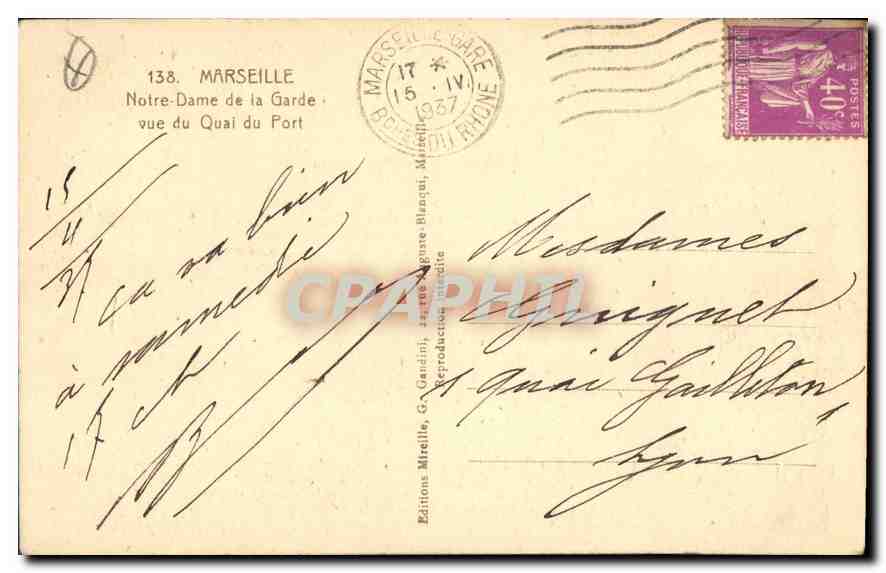 138. MARSEILLE
Notre-Dame de la Garde
vue du Quai du Port
MARSEILLE-GARE
17 *
15 · IV
1937
BCHES DU RHONE
POSTES
40c
REPUBLIQUE FRANCAISE
15/4/37
ça va bien
à samedi
17 ct
Editions Mireille, G. Gandini, 22, rue Auguste-Blanqui, Marseille
Reproduction interdite
Mesdames
Guignet
1 quai Gailleton
Lyon
CPAPHIL